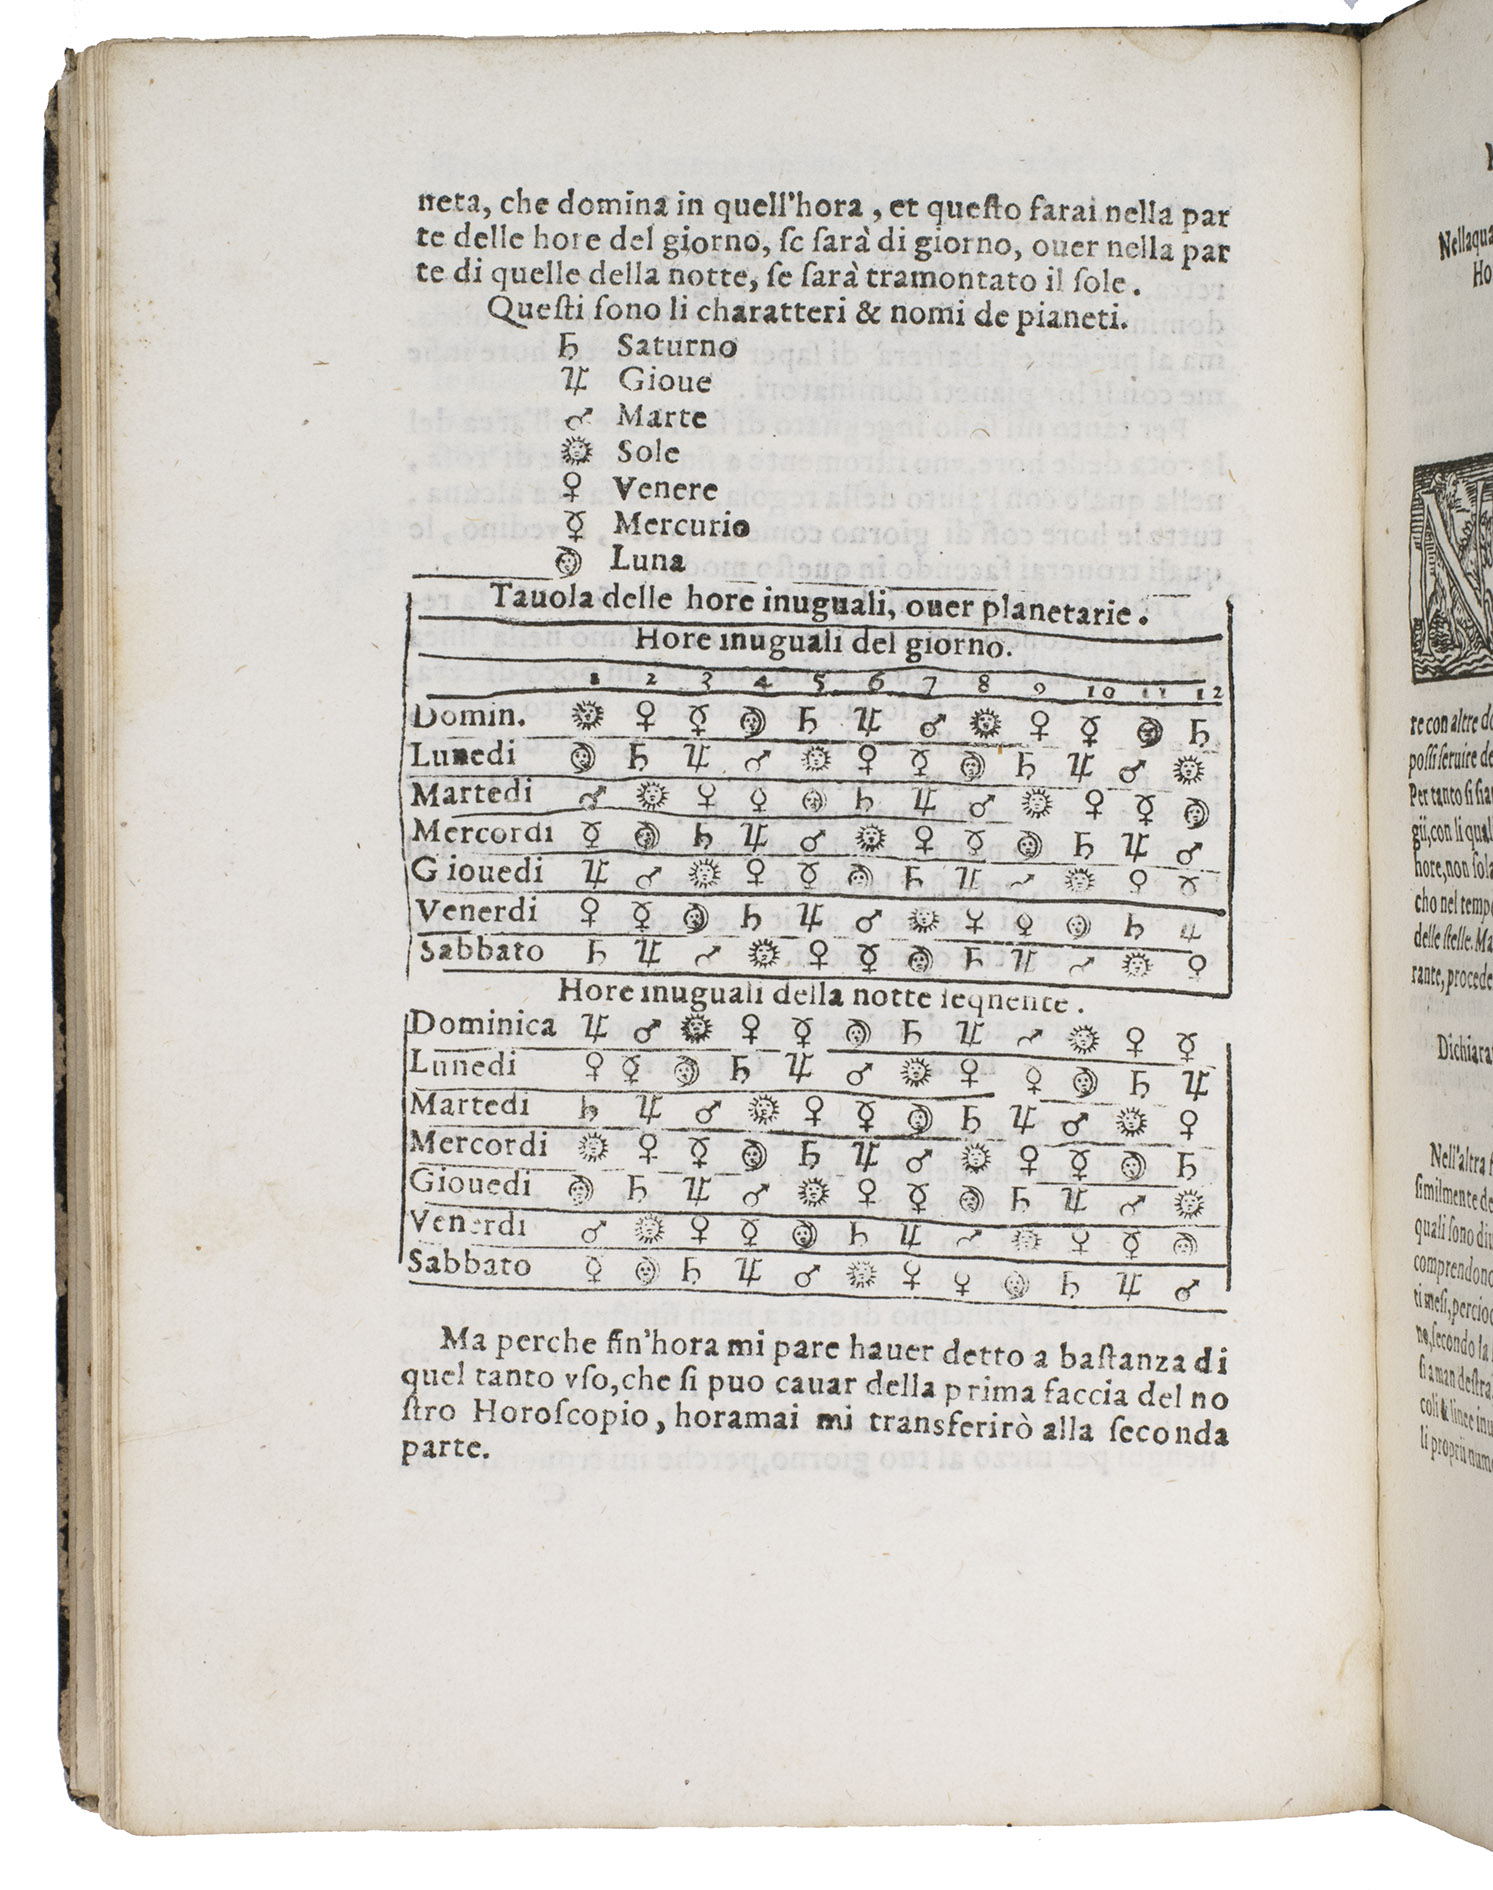 neta, che domina in quell'hora, et queſto farai nella par
te delle hore del giorno, ſe ſarà di giorno, ouer nella par
te di quelle della notte, ſe ſarà tramontato il ſole.
Queſti ſono li charatteri & nomi de pianeti.
♄ Saturno
♃ Gioue
♂ Marte
☉ Sole
♀ Venere
☿ Mercurio
☽ Luna
Tauola delle hore inuguali, ouer planetarie.
Hore inuguali del giorno.
1 2 3 4 5 6 7 8 9 10 11 12
Domin. ☉ ♀ ☿ ☽ ♄ ♃ ♂ ☉ ♀ ☿ ☽ ♄
Lunedi ☽ ♄ ♃ ♂ ☉ ♀ ☿ ☽ ♄ ♃ ♂ ☉
Martedi ♂ ☉ ♀ ☿ ☽ ♄ ♃ ♂ ☉ ♀ ☿ ☽
Mercordi ☿ ☽ ♄ ♃ ♂ ☉ ♀ ☿ ☽ ♄ ♃ ♂
Giouedi ♃ ♂ ☉ ♀ ☿ ☽ ♄ ♃ ♂ ☉ ♀ ☿
Venerdi ♀ ☿ ☽ ♄ ♃ ♂ ☉ ♀ ☿ ☽ ♄ ♃
Sabbato ♄ ♃ ♂ ☉ ♀ ☿ ☽ ♄ ♃ ♂ ☉ ♀
Hore inuguali della notte ſeqnente.
Dominica ♃ ♂ ☉ ♀ ☿ ☽ ♄ ♃ ♂ ☉ ♀ ☿
Lunedi ♀ ☿ ☽ ♄ ♃ ♂ ☉ ♀ ☿ ☽ ♄ ♃
Martedi ♄ ♃ ♂ ☉ ♀ ☿ ☽ ♄ ♃ ♂ ☉ ♀
Mercordi ☉ ♀ ☿ ☽ ♄ ♃ ♂ ☉ ♀ ☿ ☽ ♄
Giouedi ☽ ♄ ♃ ♂ ☉ ♀ ☿ ☽ ♄ ♃ ♂ ☉
Venerdi ♂ ☉ ♀ ☿ ☽ ♄ ♃ ♂ ☉ ♀ ☿ ☽
Sabbato ☿ ☽ ♄ ♃ ♂ ☉ ♀ ☿ ☽ ♄ ♃ ♂
Ma perche fin'hora mi pare hauer detto a baſtanza di
quel tanto vſo, che ſi puo cauar della prima faccia del no
ſtro Horoſcopio, horamai mi transferirò alla ſeconda
parte.
Nella
Ho
N
re con altre
poſſi ſeruire
Per tanto ſi
con li
hore, non
cho nel
delle ſtelle.
rante,
Nell'altra
ſimilmente
quali ſono
comprendono
ti meſi,
no, ſecondo la
ſi a man
coli & linee
li proprii